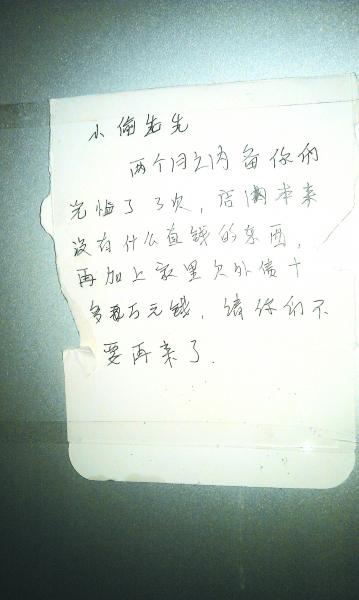 小偷先生
两个月之内备你们
光临了3次，店内本来
没有什么直钱的东西，
再加上家里欠外债十
多万元钱，请你们不
要再来了.